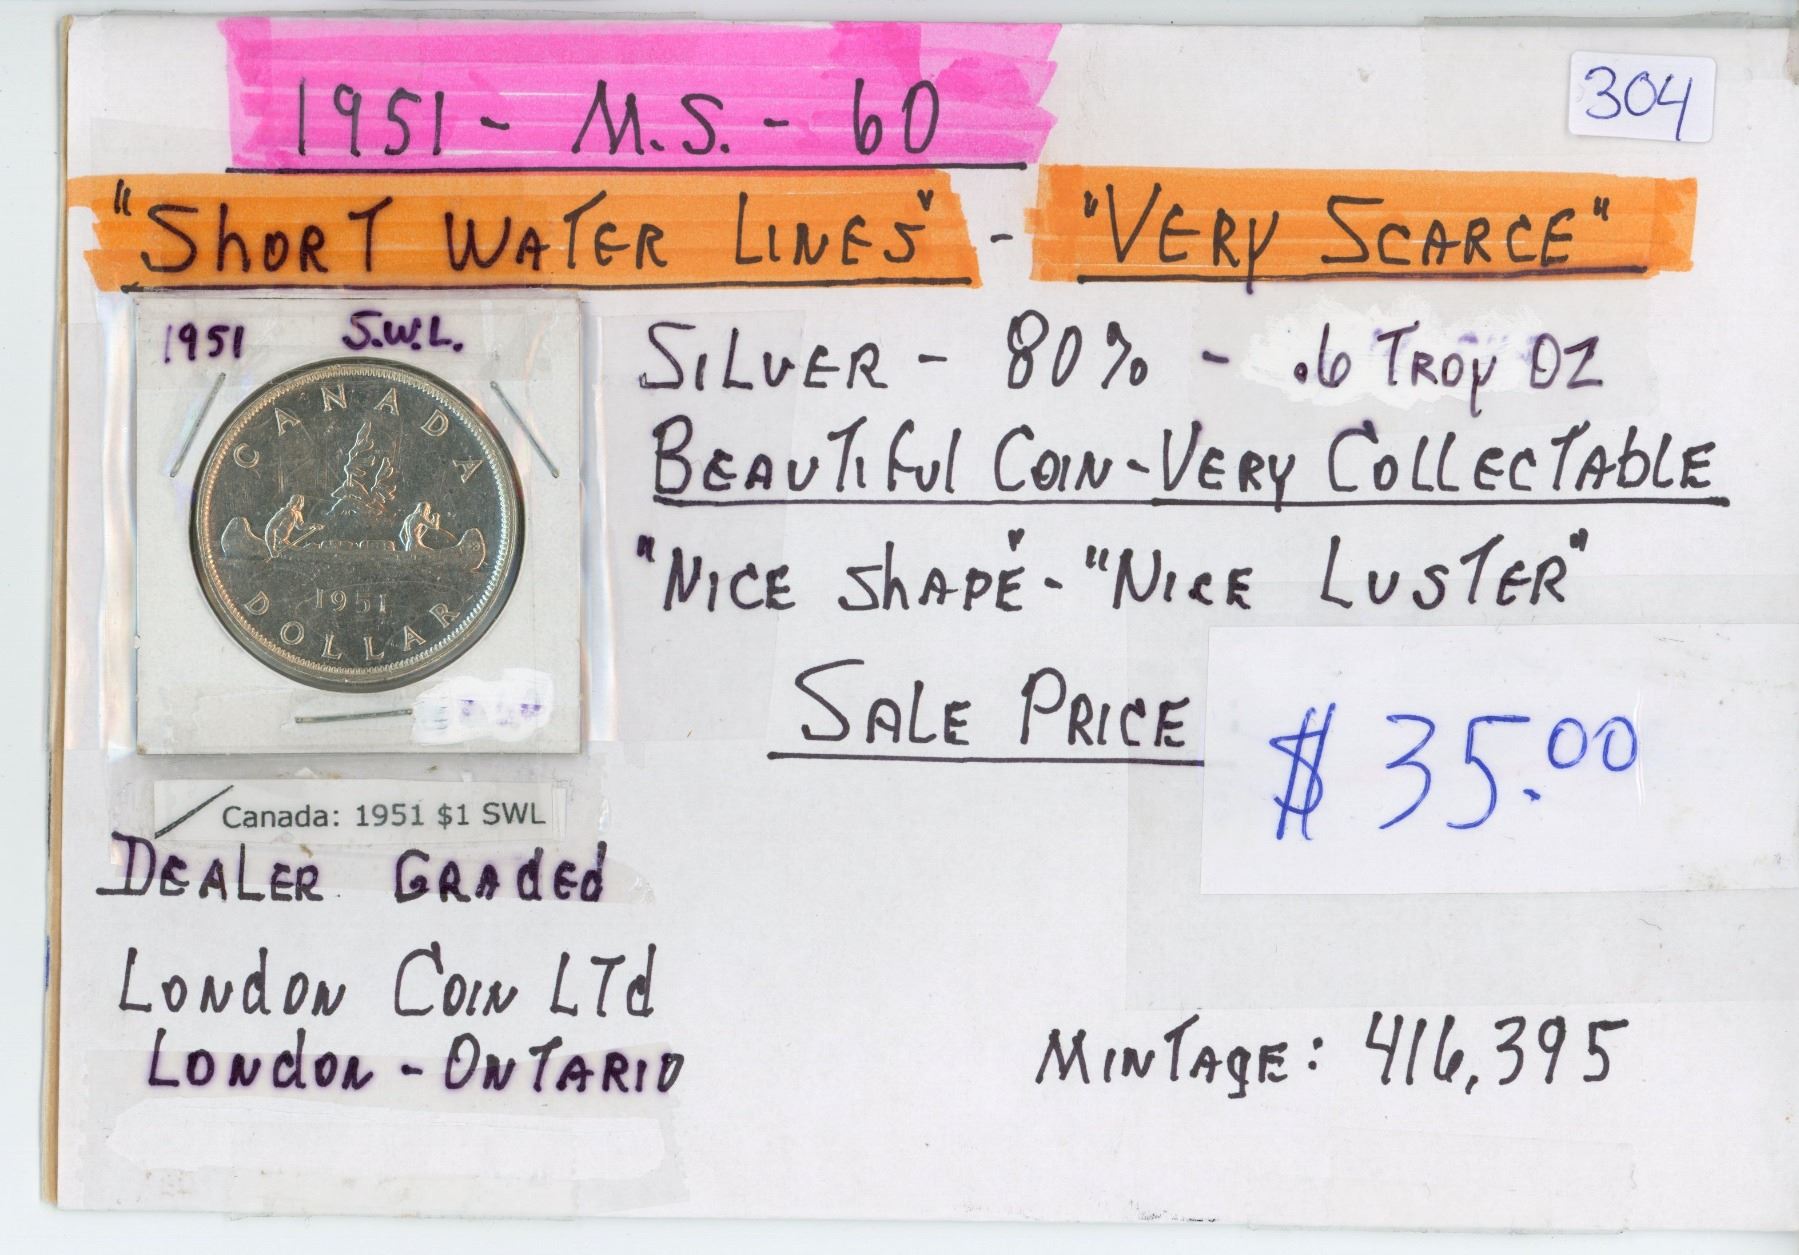 304
1951 - M.S. - 60
"Short Water Lines" - "Very Scarce"
1951 S.W.L.
CANADA
1951
DOLLAR
Silver - 80% - .6 Troy OZ
Beautiful Coin - Very Collectable
"Nice Shape" - "Nice Luster"
Sale Price $35.00
Canada: 1951 $1 SWL
Dealer Graded
London Coin LTd
London - Ontario
Mintage: 416,395